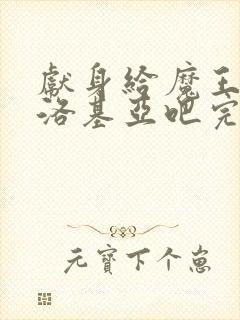 献身给魔王
洛基亞吧完
元寶下个崽